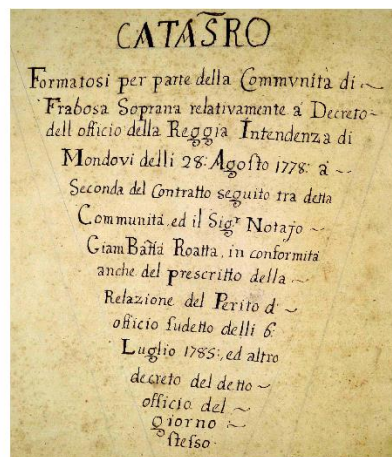 CATAS̃RO
Formatosi per parte della Commvnità di ~
Frabosa Soprana relativamente a' Decreto ~
dell officio della Reggia Intendenza di
Mondovi delli 28: Agoſto 1778: a' ~
Seconda del Contratto seguito tra detta
Communità, ed il Sigr. Notajo ~
GiamBatta Roatta, in conformità
anche del prescritto della ~
Relazione del Perito d' ~
officio ſudetto delli 6:
Luglio 1785:, ed altro
decreto del detto ~
officio del ~
giorno ~
ſtesso.